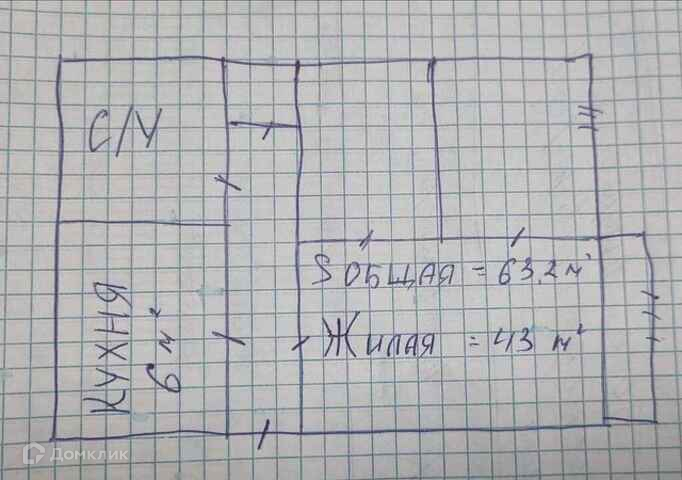 С/У
КУХНЯ
6 м²
S ОБЩАЯ = 63,2 м²
Жилая = 43 м²
Домклик